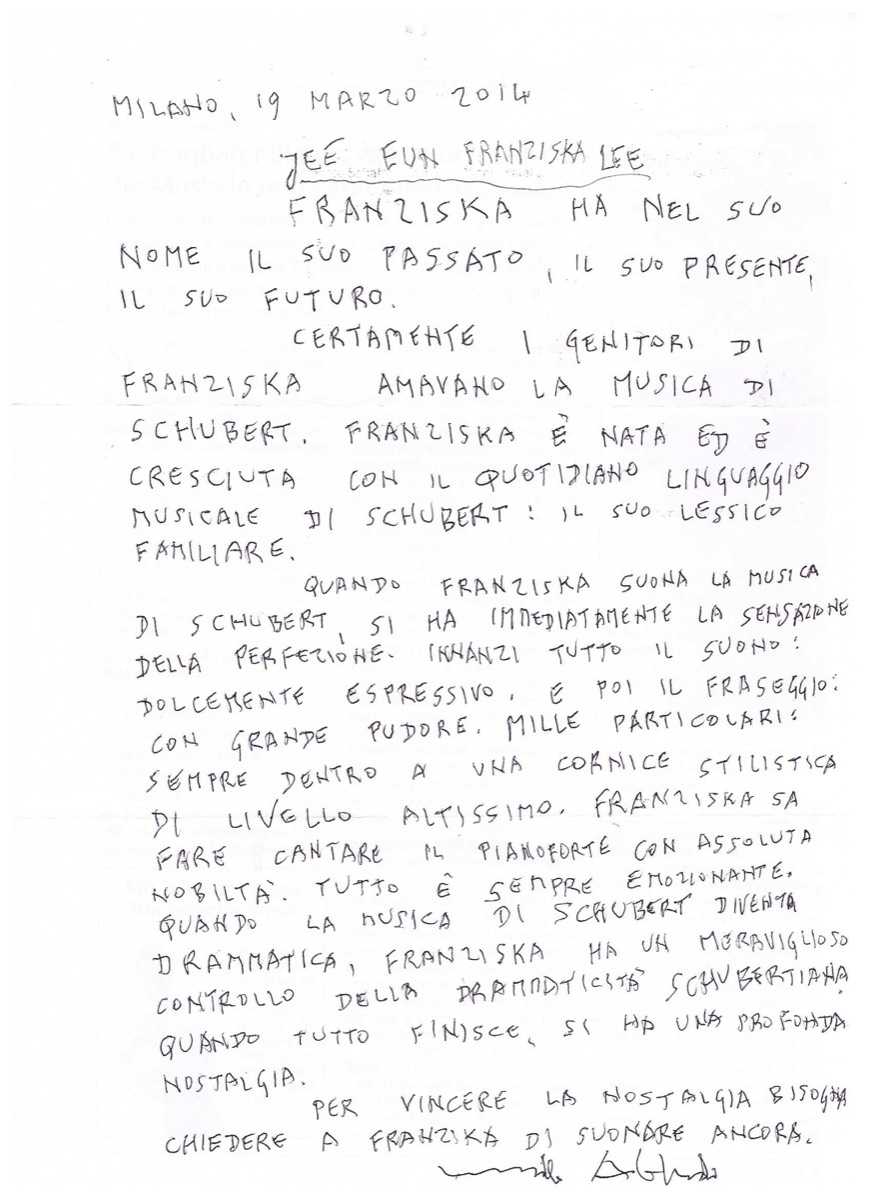 MILANO, 19 MARZO 2014
JEE EUN FRANZISKA LEE
FRANZISKA HA NEL SUO
NOME IL SUO PASSATO, IL SUO PRESENTE,
IL SUO FUTURO.
CERTAMENTE I GENITORI DI
FRANZISKA AMAVANO LA MUSICA DI
SCHUBERT. FRANZISKA È NATA ED È
CRESCIUTA CON IL QUOTIDIANO LINGUAGGIO
MUSICALE DI SCHUBERT: IL SUO LESSICO
FAMILIARE.
QUANDO FRANZISKA SUONA LA MUSICA
DI SCHUBERT, SI HA IMMEDIATAMENTE LA SENSAZIONE
DELLA PERFEZIONE. INNANZI TUTTO IL SUONO:
DOLCEMENTE ESPRESSIVO. E POI IL FRASEGGIO:
CON GRANDE PUDORE. MILLE PARTICOLARI:
SEMPRE DENTRO A UNA CORNICE STILISTICA
DI LIVELLO ALTISSIMO. FRANZISKA SA
FARE CANTARE IL PIANOFORTE CON ASSOLUTA
NOBILTÀ. TUTTO È SEMPRE EMOZIONANTE.
QUANDO LA MUSICA DI SCHUBERT DIVENTA
DRAMMATICA, FRANZISKA HA UN MERAVIGLIOSO
CONTROLLO DELLA DRAMMATICITÀ SCHUBERTIANA.
QUANDO TUTTO FINISCE, SI HA UNA PROFONDA
NOSTALGIA.
PER VINCERE LA NOSTALGIA BISOGNA
CHIEDERE A FRANZIKA DI SUONARE ANCORA.